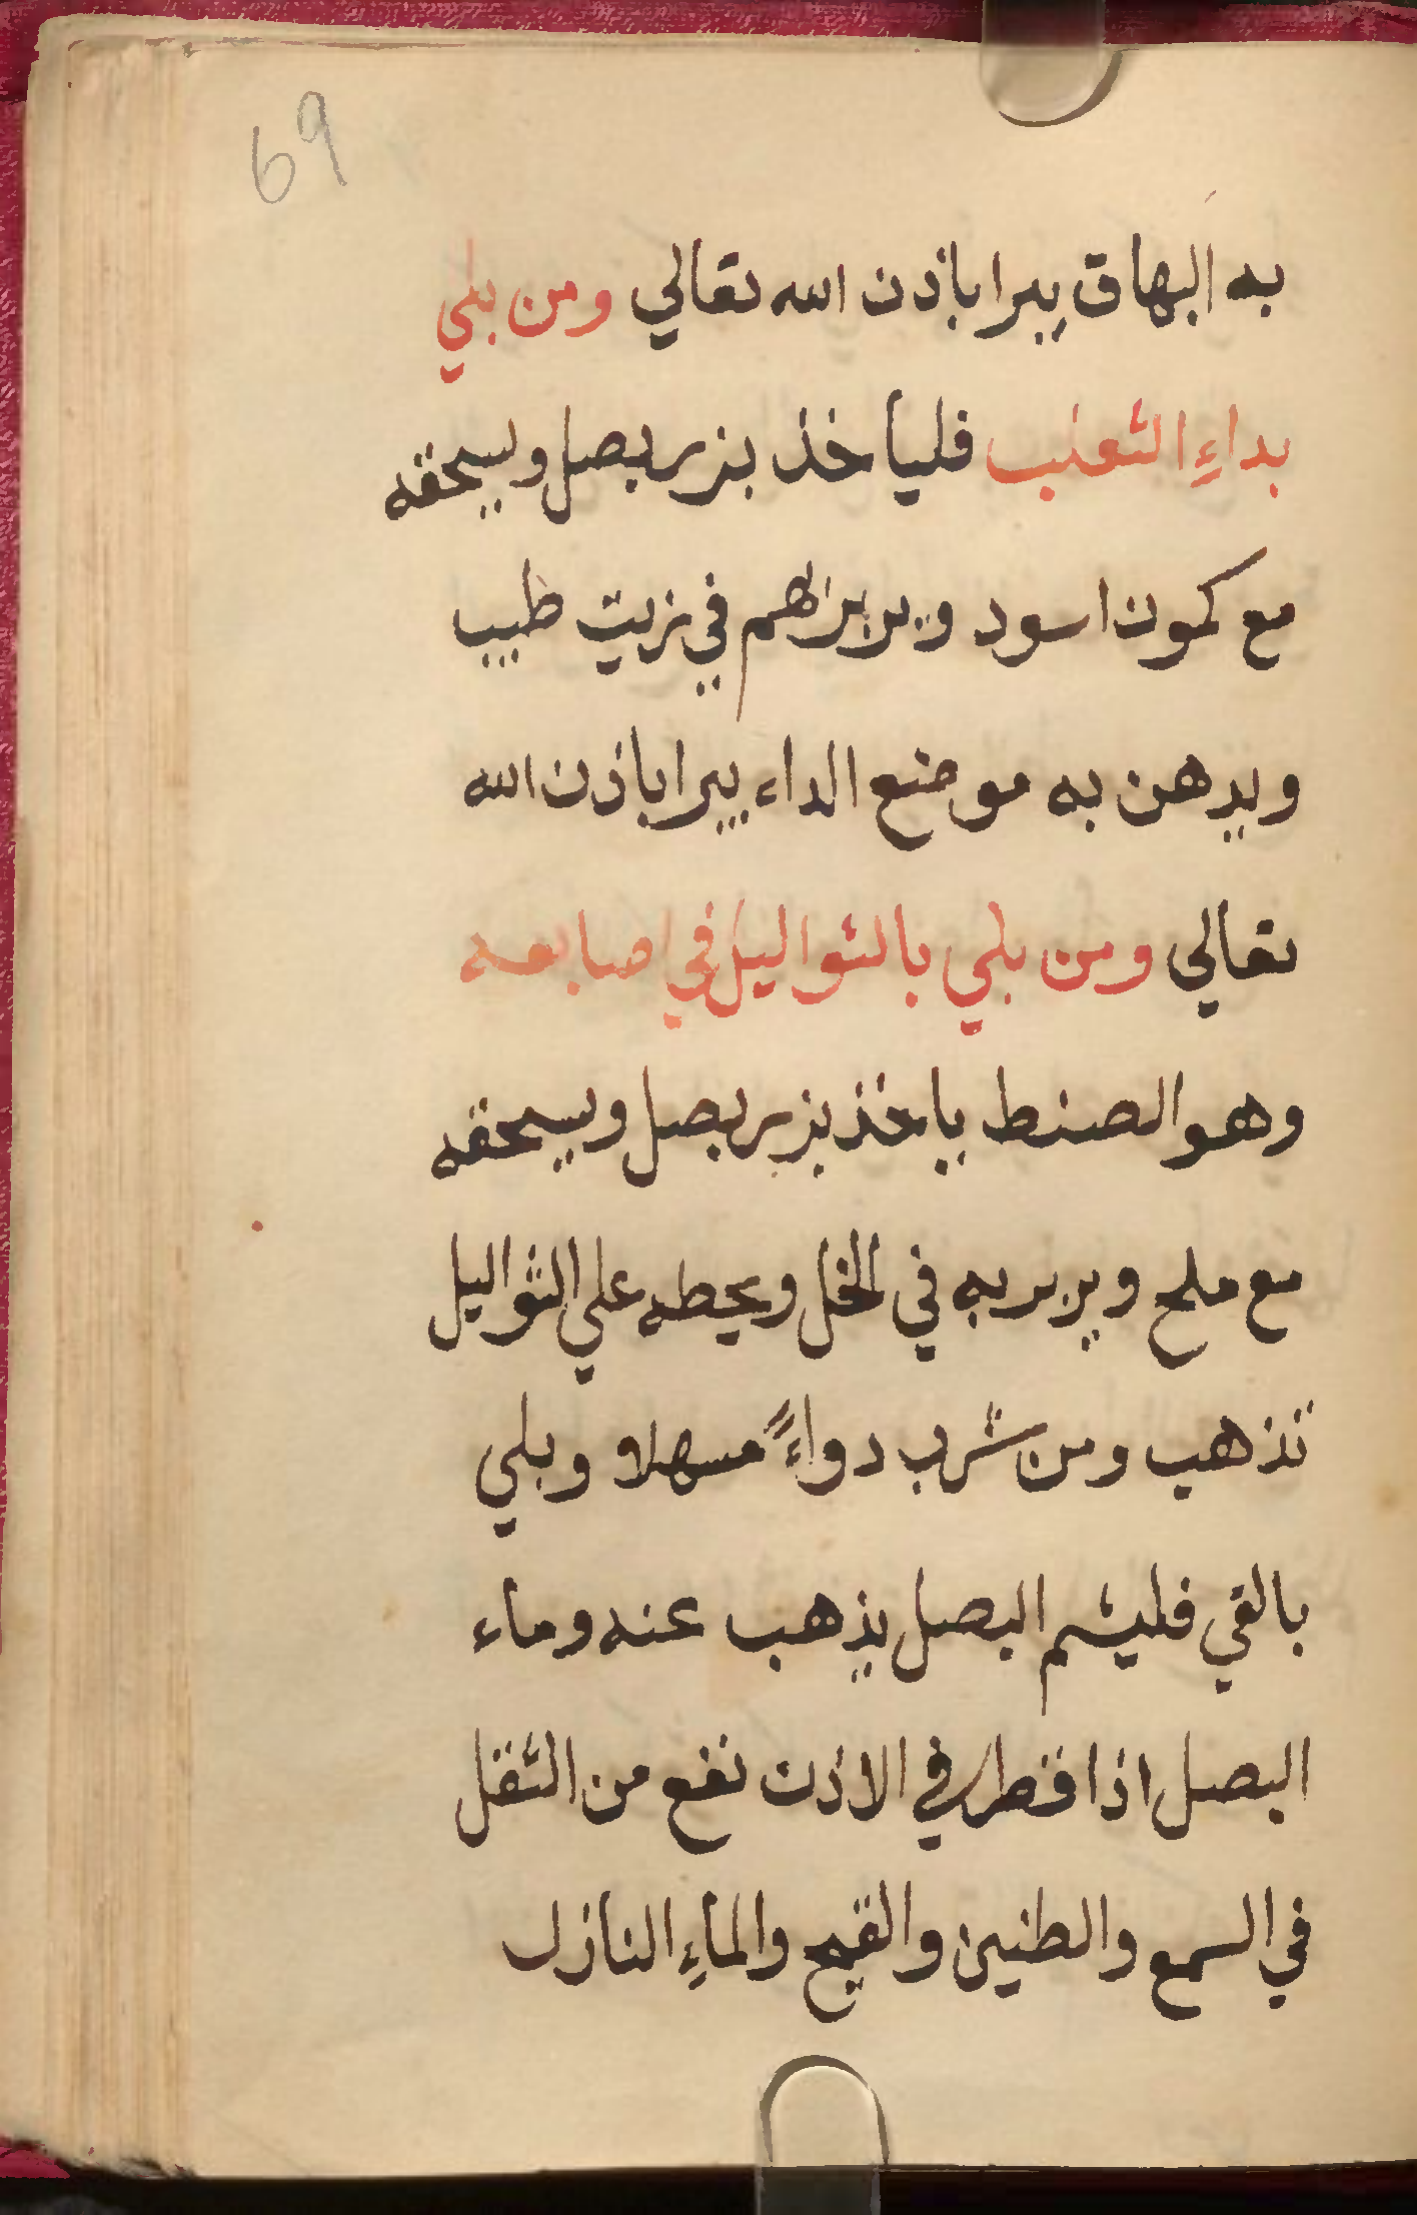 69
به البهاق يبرا باذن الله تعالي ومن بلي
بداءِ الثعلب فلياخذ بزر بصل ويسحقه
مع كمون اسود ويربيهم في زيت طيب
ويدهن به موضع الداء يبرا باذن الله
تعالي ومن بلي بالثواليل في اصابعه
وهو الصنط ياخذ بزر بصل ويسحقه
مع ملح ويربيه في الخل ويحطه علي الثواليل
تذهب ومن شرب دواءً مسهلا وبلي
بالقي فليشم البصل يذهب عنه وماء
البصل اذا قطر في الاذن نفع من الثقل
في السمع والطنين والقيح والماءِ النازل